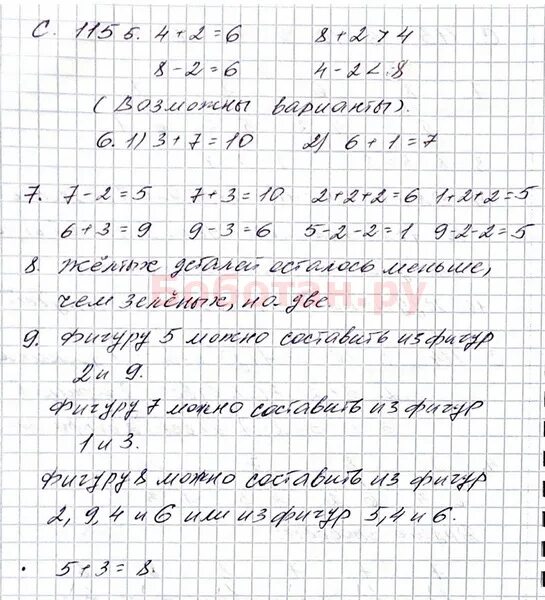 С. 115 5. 4+2=6 8+2>4
8-2=6 4-2<8
(Возможны варианты).
6. 1) 3+7=10 2) 6+1=7
7. 7-2=5 7+3=10 2+2+2=6 1+2+2=5
6+3=9 9-3=6 5-2-2=1 9-2-2=5
8. Жёлтых деталей осталось меньше,
чем зелёных, на две.
Боботан.ру
9. Фигуру 5 можно составить из фигур
2 и 9.
Фигуру 7 можно составить из фигур
1 и 3.
Фигуру 8 можно составить из фигур
2, 9, 4 и 6 или из фигур 5, 4 и 6.
. 5+3=8.